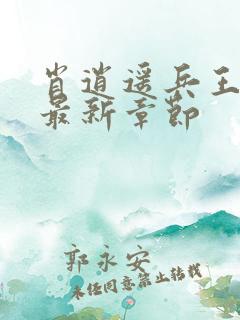 肖逍遥兵王
最新章节
郭永安
未经同意禁止转载